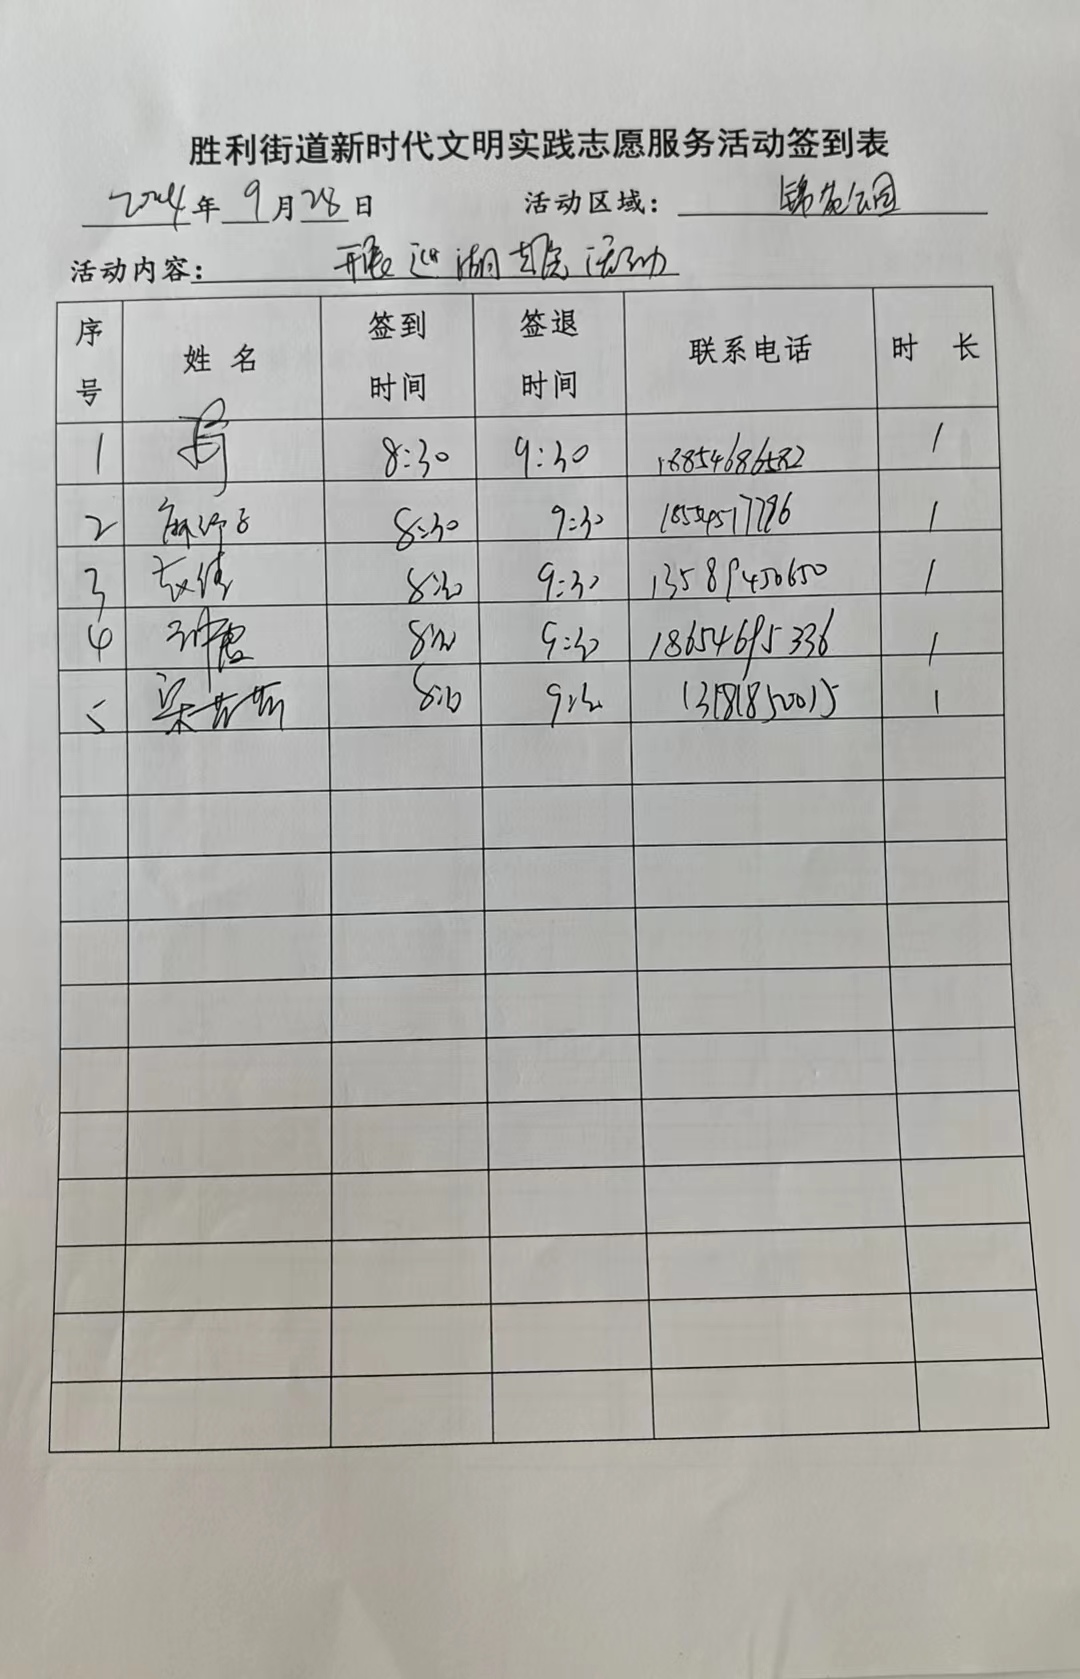 胜利街道新时代文明实践志愿服务活动签到表
2024年9月28日 活动区域: 锦苑公园
活动内容: 开展巡湖志愿活动
序号 姓名 签到时间 签退时间 联系电话 时长
1 8:30 9:30 18854686582 1
2 8:30 9:30 1
3 8:30 9:30 13589450650 1
4 8:30 9:30 18654695336 1
5 梁芳芳 8:30 9:30 13181850015 1